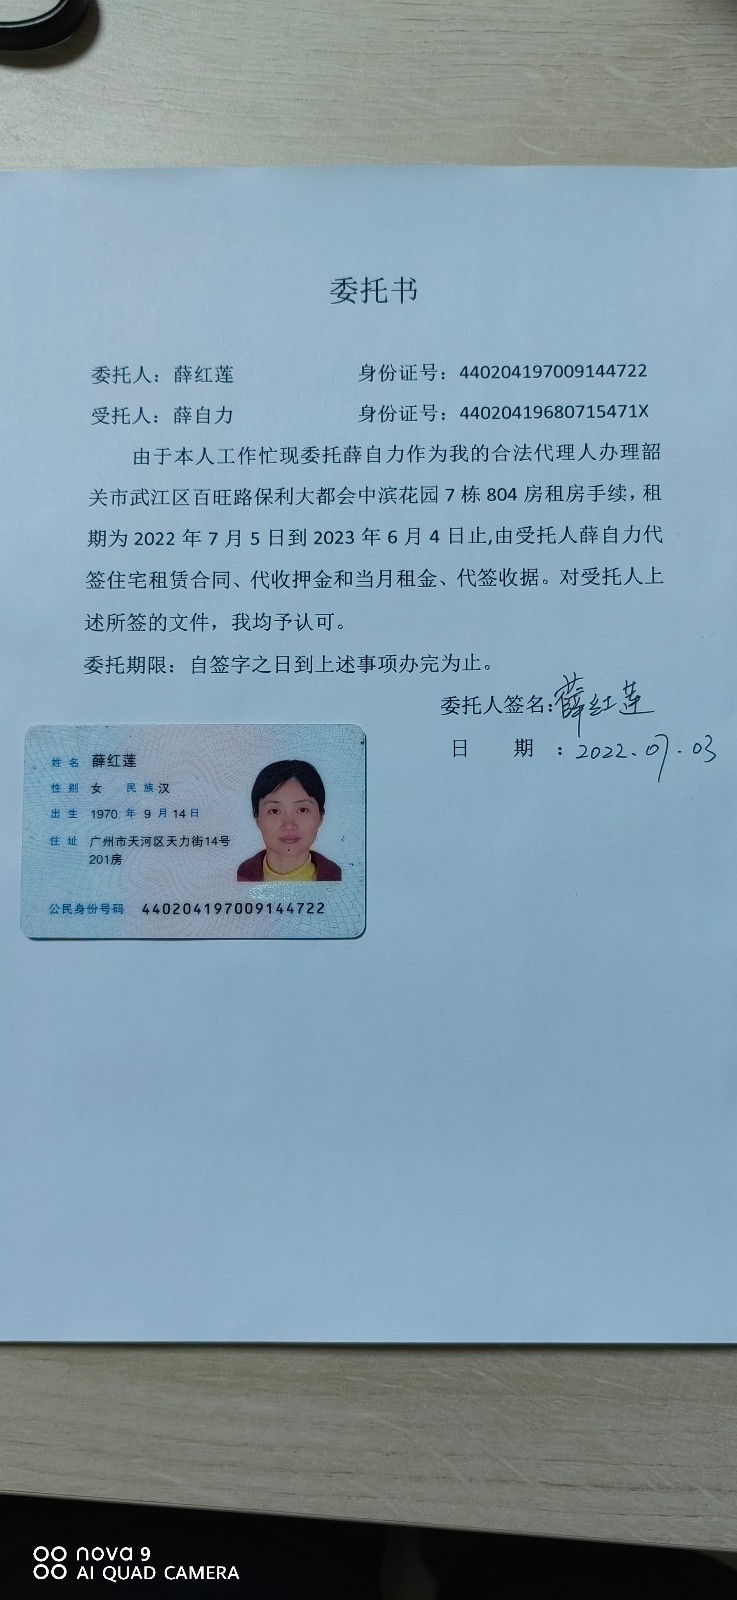 委托书
委托人：薛红莲 身份证号：440204197009144722
受托人：薛自力 身份证号：44020419680715471X
由于本人工作忙现委托薛自力作为我的合法代理人办理韶
关市武江区百旺路保利大都会中滨花园 7 栋 804 房租房手续，租
期为 2022 年 7 月 5 日到 2023 年 6 月 4 日止,由受托人薛自力代
签住宅租赁合同、代收押金和当月租金、代签收据。对受托人上
述所签的文件，我均予认可。
委托期限：自签字之日到上述事项办完为止。
委托人签名:薛红莲
日 期 ：2022.07.03
姓名 薛红莲
性别 女 民族 汉
出生 1970 年 9 月 14 日
住址 广州市天河区天力街14号
201房
公民身份号码 440204197009144722
nova 9
AI QUAD CAMERA